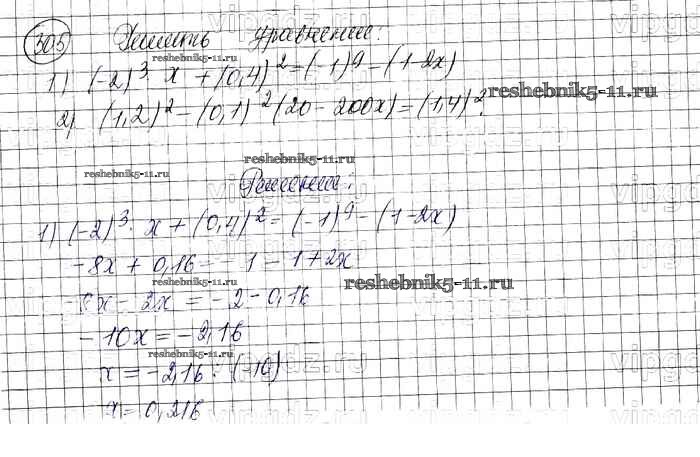 305 Решить уравнение:
1) (-2)³ x + (0,4)² = (-1)⁹ - (1-2x)
2) (1,2)² - (0,1)² (20 - 200x) = (1,4)².
Решение:
1) (-2)³ · x + (0,4)² = (-1)⁹ - (1-2x)
-8x + 0,16 = -1 - 1 + 2x
-8x - 2x = -2 - 0,16
-10x = -2,16
x = -2,16 : (-10)
x = 0,216
reshebnik5-11.ru
reshebnik5-11.ru
reshebnik5-11.ru
reshebnik5-11.ru
reshebnik5-11.ru
reshebnik5-11.ru